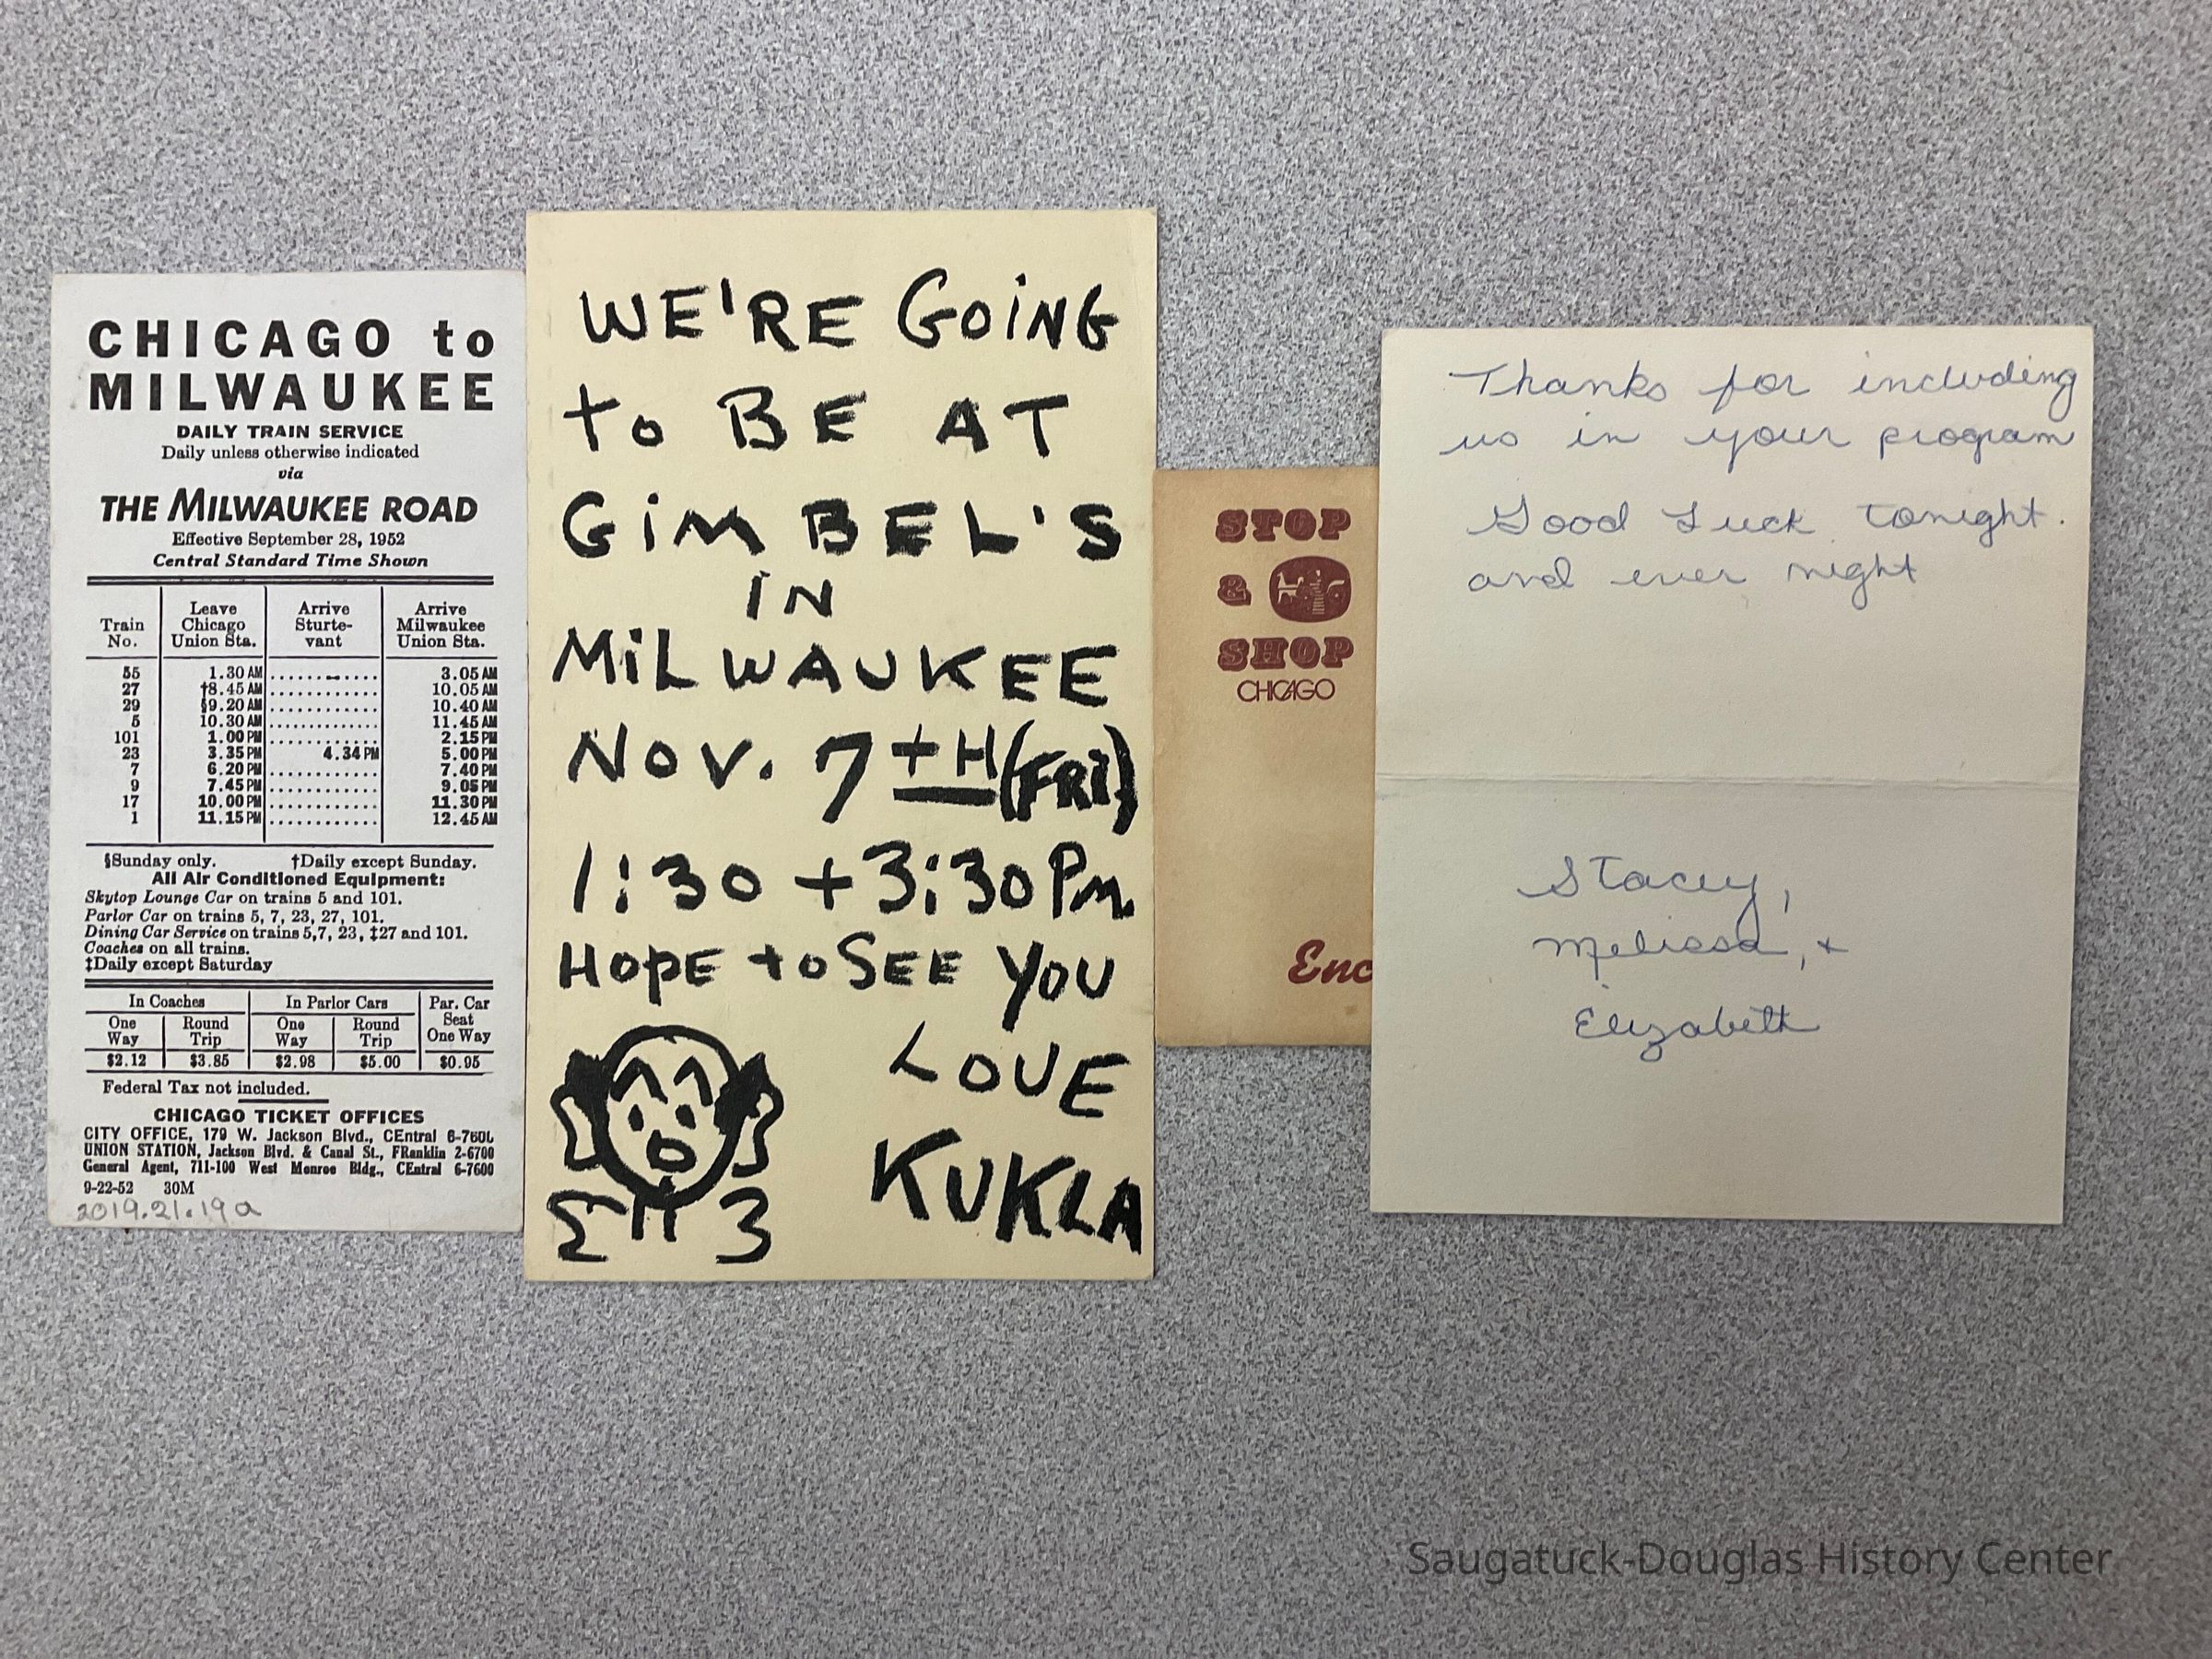 CHICAGO to
MILWAUKEE
DAILY TRAIN SERVICE
Daily unless otherwise indicated
via
THE MILWAUKEE ROAD
Effective September 28, 1952
Central Standard Time Shown
Train No. Leave Chicago Union Sta. Arrive Sturte-vant Arrive Milwaukee Union Sta.
55 1.30 AM 3.05 AM
27 †8.45 AM 10.05 AM
29 §9.20 AM 10.40 AM
5 10.30 AM 11.45 AM
101 1.00 PM 2.15 PM
23 3.35 PM 4.34 PM 5.00 PM
7 6.20 PM 7.40 PM
9 7.45 PM 9.05 PM
17 10.00 PM 11.30 PM
1 11.15 PM 12.45 AM
§Sunday only. †Daily except Sunday.
All Air Conditioned Equipment:
Skytop Lounge Car on trains 5 and 101.
Parlor Car on trains 5, 7, 23, 27, 101.
Dining Car Service on trains 5,7, 23, ‡27 and 101.
Coaches on all trains.
‡Daily except Saturday
In Coaches In Parlor Cars Par. Car Seat One Way
One Way Round Trip One Way Round Trip
$2.12 $3.85 $2.98 $5.00 $0.95
Federal Tax not included.
CHICAGO TICKET OFFICES
CITY OFFICE, 179 W. Jackson Blvd., CEntral 6-7600
UNION STATION, Jackson Blvd. & Canal St., FRanklin 2-6700
General Agent, 711-100 West Monroe Bldg., CEntral 6-7600
9-22-52 30M
2019.21.19a
WE'RE GOiNG
to BE AT
GiMBEL'S
iN
MiLWAUKEE
NOV. 7TH (FRI)
1:30 + 3:30 Pm.
HOPE to SEE YOU
LOVE
KUKLA
STOP
&
SHOP
CHICAGO
Enc
Thanks for including
us in your program
Good Luck tonight.
and ever night
Stacey,
Melissa, +
Elizabeth
Saugatuck-Douglas History Center